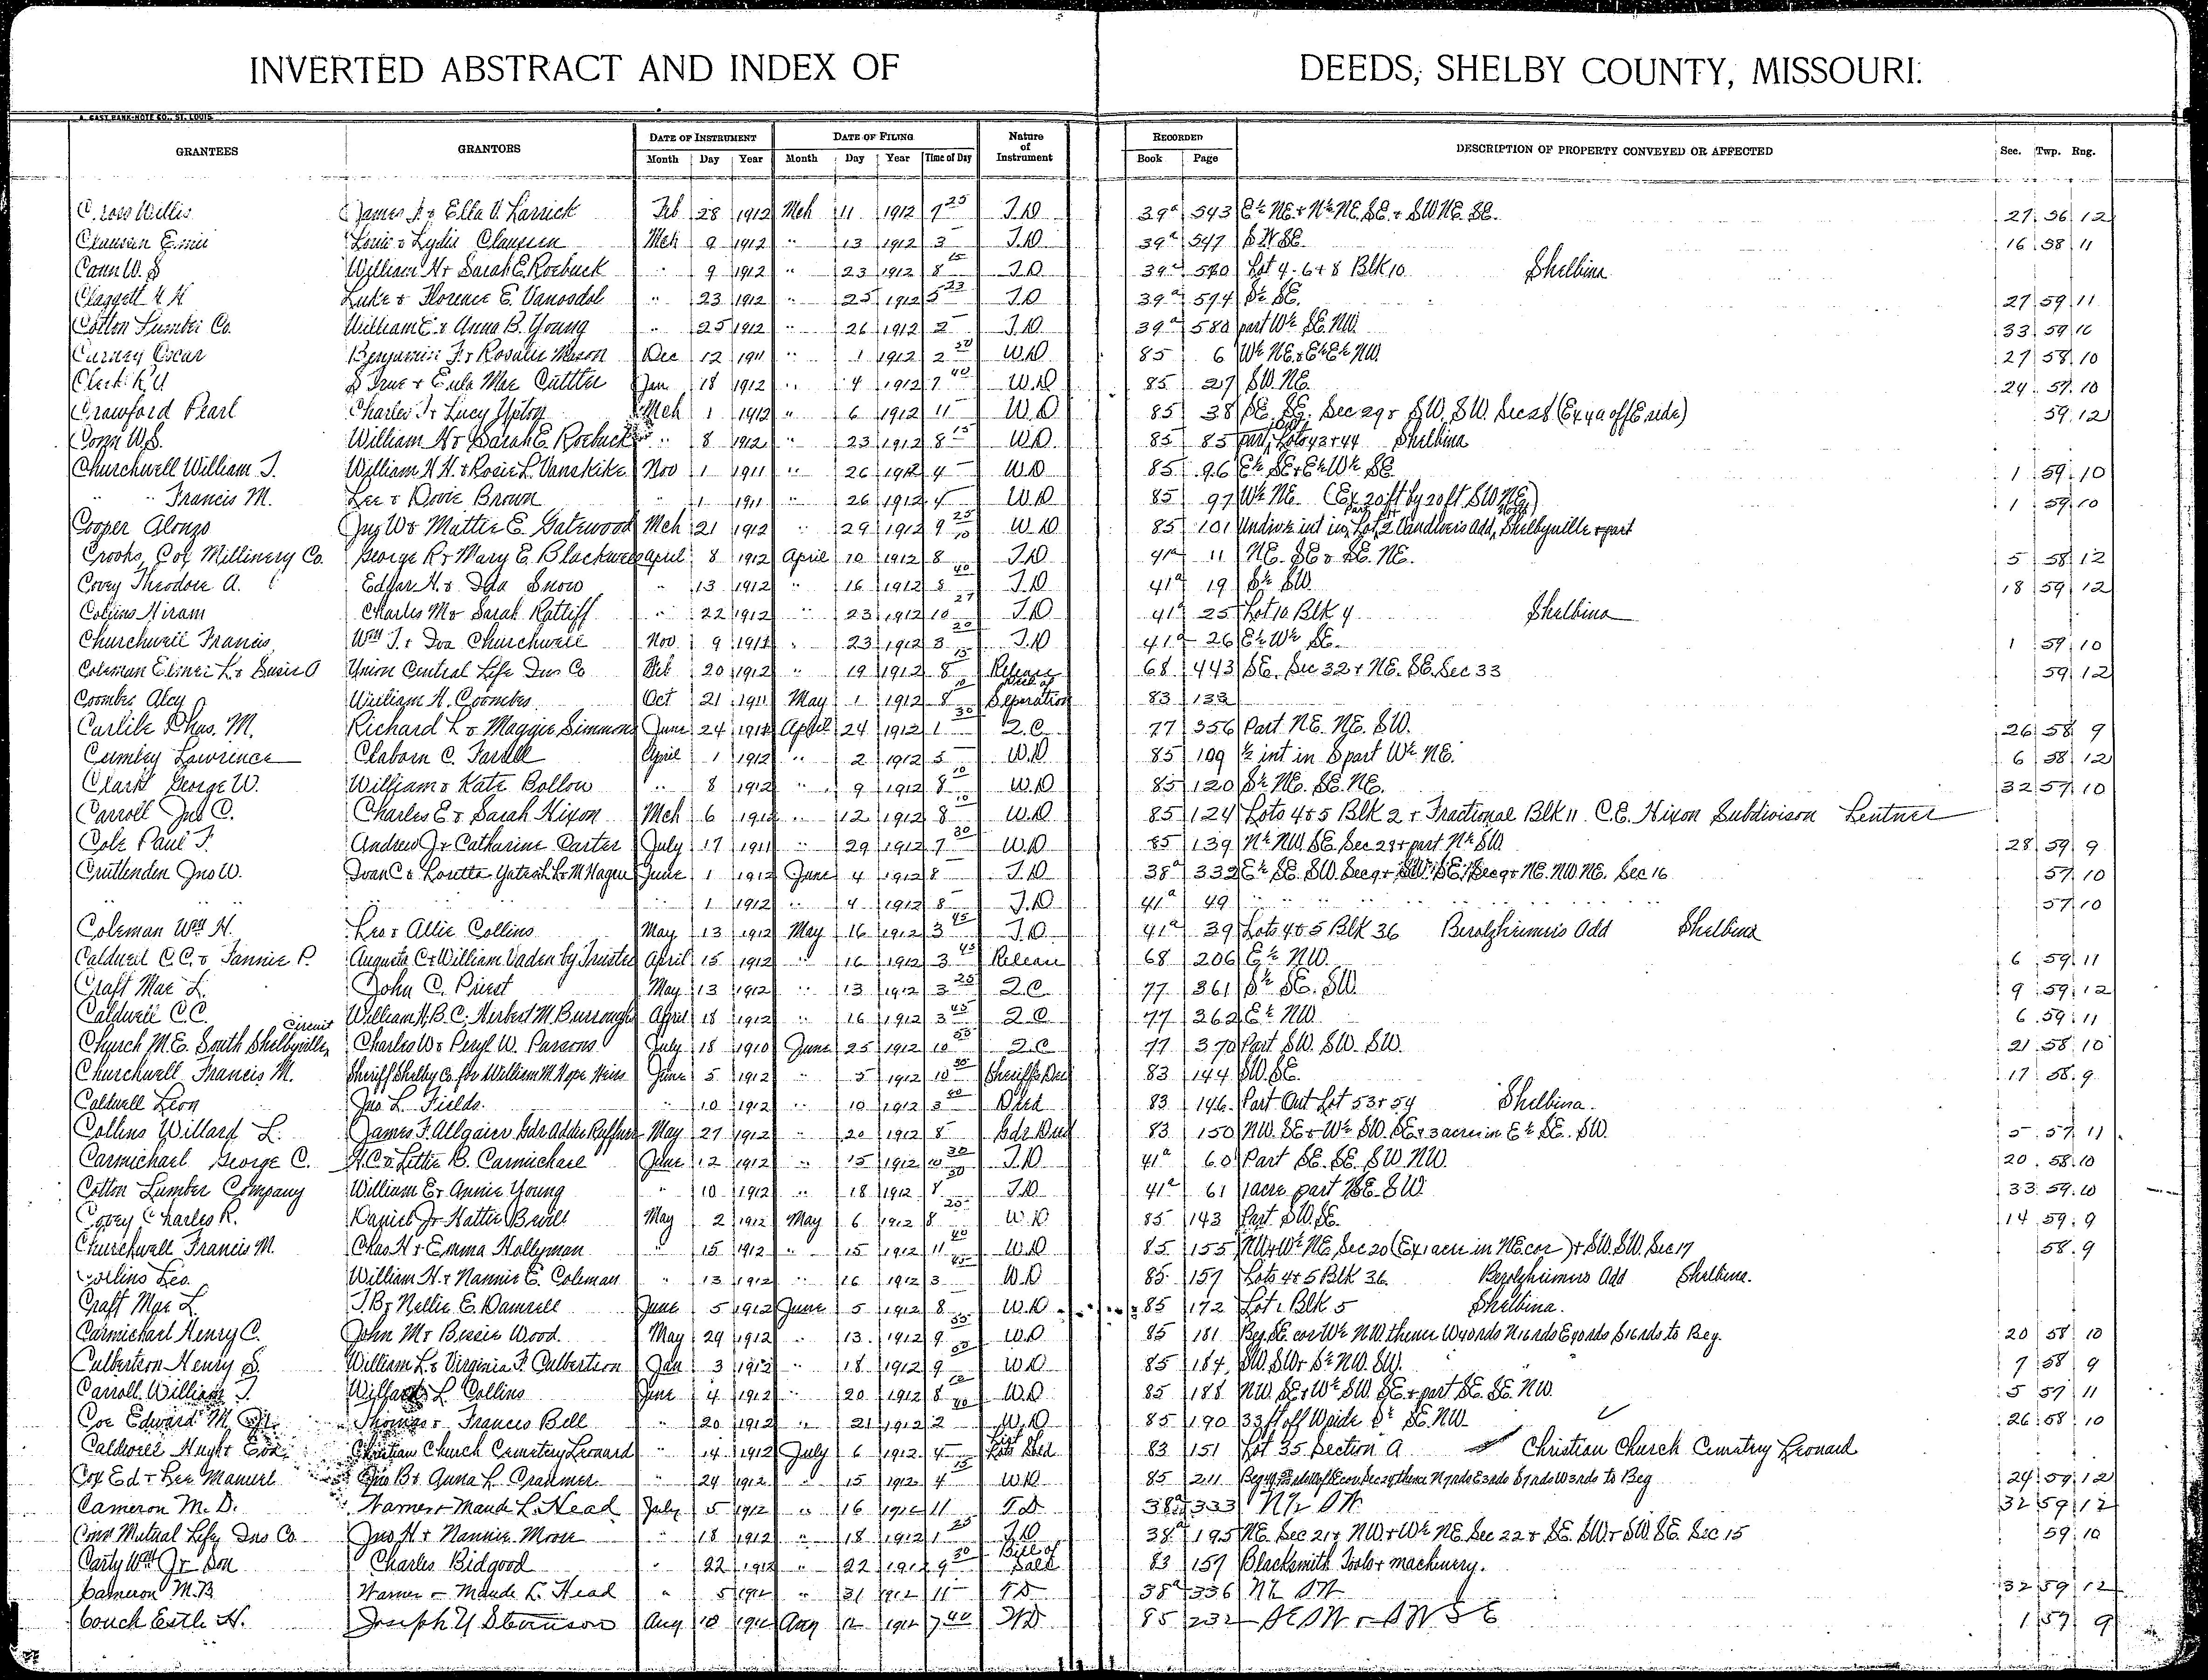 INVERTED ABSTRACT AND INDEX OF DEEDS, SHELBY COUNTY, MISSOURI.
GRANTEES GRANTORS DATE OF INSTRUMENT DATE OF FILING Nature of Instrument RECORDED DESCRIPTION OF PROPERTY CONVEYED OR AFFECTED Sec. Twp. Rng.
Month Day Year Month Day Year Time of Day Book Page
Cross Willis James & Ella V. Larrick Feb 28 1912 Mch 11 1912 T.D 39a 543 E½ NE & W½ NE, SE. & SW. NE. SE. 27 56 12
Clausen Ernie Louie & Lydie Clausen Mch 9 1912 " 13 1912 3 T.D 39a 547 SW SE. 16 58 11
William H & Sarah E. Roebuck " 9 1912 " 23 1912 8 15 T.D 39a Lot 4-6 & 8 Blk 10 Shelbina
Claggett Luke & Florence E. Vanosdol " 23 1912 " 25 1912 5 23 T.D 39a 574 S½ SE. 27 59 11
Cotton Lumber Co. William E. & Anna B. Young " 25 1912 " 26 1912 2 T.D 39a 580 part W½ SE. NW. 33 59
Oscar Benjamin F & Rosalie Mason Dec 12 1911 " 1 1912 2 W.D 85 6 W½ NE. & E½ E½ NW. 27 58 10
True & Eula Mae Cuttler Jan 18 1912 " 4 1912 7 40 W.D 85 27 SW. NE. 24 57 10
Crawford Pearl Charles & Lucy Upton Mch 1 1912 " 6 1912 11 W.D 85 38 SE. SE. Sec 29 & SW. SW. Sec 28 (Ex 4 a off E side) 59 12
Conn W.S. William H & Sarah E. Roebuck " 8 1912 " 23 1912 8 15 W.D 85 85 part Lots 43 & 44 Shelbina
Churchwell William T. William H.H. & Rosie L. Vanskike Nov 1 1911 " 26 1912 4 W.D 85 96 E½ SE & E½ W½ SE 1 59 10
" " Francis M. Lee & Dovie Brown " 1 1911 " 26 1912 4 W.D 85 97 W½ NE. (Ex 20 ft by 20 ft SW NE) 1 59 10
Cooper Alonzo Jno W & Mattie E. Gatewood Mch 21 1912 " 29 1912 9 25 W.D 85 101 Undivi int in Lot 2 Vandivers Add, Shelbyville & part
Crooks, Millinery Co. George R & Mary E. Blackwell April 8 1912 April 10 1912 8 10 T.D 41a 11 NE. SE & SE. NE. 5 58 12
Covey Theodore A. Edgar H. & Ida Snow " 13 1912 " 16 1912 8 40 T.D 41a 19 S½ SW. 18 59 12
Collins Hiram Charles M & Sarah Ratliff " 22 1912 " 23 1912 10 27 T.D 41a 25 Lot 10 Blk 4 Shelbina
Churchwell Francis Wm T. & Iva Churchwell Nov 9 1911 " 23 1912 3 20 T.D 41a 26 E½ W½ SE. 1 59 10
Coleman Elmer L. & Susie A Union Central Life Ins Co Feb 20 1912 " 19 1912 8 15 Release 68 443 SE. Sec 32 & NE. SE. Sec 33 59 12
Coombs Alcy William H. Coombs Oct 21 1911 May 1 1912 8 10 Deed of Seperation 83 133
Carlile Chas. M. Richard L & Maggie Simmons June 24 1911 April 24 1912 1 30 Q.C. 77 356 Part NE. NE. SW. 26 58 9
Cumley Lawrence Claborn C. Farrell April 1 1912 " 2 1912 5 W.D 85 109 ½ int in S part W½ NE. 6 58 12
Clark George W. William & Kate Bollow " 8 1912 " 9 1912 8 10 W.D 85 120 S½ NE. SE. NE. 32 57 10
Carroll Jno C. Charles E & Sarah Hixon Mch 6 1912 " 12 1912 8 10 W.D 85 124 Lots 4 & 5 Blk 2 & Fractional Blk 11 C.E. Hixon Subdivison Lentner
Cole Paul F. Andrew J & Catharine Carter July 17 1911 " 29 1912 7 30 W.D 85 139 N½ NW. SE. Sec 28 & part N½ SW. 28 59 9
Crittenden Jno W. Ivan C & Loretta Yates June 1 1912 June 4 1912 8 T.D 38a 332 E½ SE. SW. Sec 9 & SW. SE. Sec 9 & NE. NW. NE. Sec 16 57 10
" " 1 1912 " 4 1912 8 T.D 41a 49 " " " 57 10
Coleman Wm H. Leo & Allie Collins May 13 1912 May 16 1912 3 45 T.D 41a 39 Lots 4 & 5 Blk 36 Berolzheimers Add Shelbina
Caldwell C.C. & Fannie P. Augusta C & William Vaden by Trustee April 15 1912 " 16 1912 3 45 Release 68 206 E½ NW. 6 59 11
Craft Mae L. John C. Priest May 13 1912 " 13 1912 3 25 Q.C. 77 361 S½ SE. SW. 9 59 12
Caldwell C.C. William H, B.C, Herbert M. Burroughs April 18 1912 " 16 1912 3 45 Q.C 77 362 E½ NW. 6 59 11
Church M.E. South Shelbyville Circuit Charles W & Peryl W. Parsons July 18 1910 June 25 1912 10 50 Q.C 77 370 Part SW. SW. SW. 21 58 10
Churchwell Francis M. Sheriff Shelby Co. for William M. Hope Heirs June 5 1912 " 5 1912 10 30 Sheriffs Deed 83 144 SW. SE. 17 58 9
Caldwell Leon Jno L. Fields. " 10 1912 " 10 1912 3 40 Deed 83 146 Part Out Lot 53 & 54 Shelbina.
Collins Willard L. James F. Allgaier Gdn Addie Ruffner May 27 1912 " 20 1912 8 Gdn Deed 83 150 NW. SE & W½ SW. SE & 3 acres in E½ SE. SW. 5 57 11
Carmichael George C. H.C. & Lettie B. Carmichael June 12 1912 " 15 1912 10 30 T.D 41a 60 Part SE. SE. SW. NW. 20 58 10
Cotton Lumber Company William E & Annie Young " 10 1912 " 18 1912 8 T.D 41a 61 1 acre part SE. SW. 33 59 10
Covey Charles R. Daniel J & Hattie Bevill May 2 1912 May 6 1912 8 25 W.D 85 143 Part SW. SE. 14 59 9
Churchwell Francis M. Chas H & Emma Hollyman " 15 1912 " 15 1912 11 40 W.D 85 155 NW & W½ NE. Sec 20 (Ex 1 acre in NE cor) & SW. SW. Sec 17 58 9
Collins Leo. William H. & Nannie E. Coleman " 13 1912 " 16 1912 3 45 W.D 85 157 Lots 4 & 5 Blk 36. Berolzheimers Add Shelbina.
Craft Mae L. T.B & Nellie E. Damrell June 5 1912 June 5 1912 8 W.D 85 172 Lot 1 Blk 5 Shelbina.
Carmichael Henry C. John M & Bessie Wood. May 29 1912 " 13 1912 9 35 W.D 85 181 Beg. SE. cor W½ NW. thence W 40 rds N 16 rds E 40 rds S 16 rds to Beg. 20 58 10
Culbertson Henry S. William L. & Virginia F. Culbertson Jan 3 1912 " 18 1912 9 50 W.D 85 184 SW. SW & S½ NW. SW. 7 58 9
Carroll William T. Willard L Collins June 4 1912 " 20 1912 8 10 W.D 85 188 NW. SE & W½ SW. SE. & part SE. SE. NW. 5 57 11
Coe Edward M, Thomas & Frances Bell " 20 1912 " 21 1912 2 40 W.D 85 190 33 ft off W side S½ SE. NW. 26 58 10
Christian Church Cemetery Leonard " 14 1912 July 6 1912 4 Lots Deed 83 151 Lot 35 Section A Christian Church Cemetry Leonard
Cox Ed & Lee Manuel Jno B & Anna L. Cranmer " 24 1912 " 15 1912 4 15 W.D 85 211 24 59 12
Cameron M. D. Warner & Maude L. Head July 5 1912 " 16 1912 11 T.D 38a 333 N½ SW. 32 59 12
Conn Mutual Life Ins Co. Jno H. & Nannie Moore " 18 1912 " 18 1912 1 25 T.D 38a 195 NE. Sec 21 & NW & W½ NE. Sec 22 & SE. SW & SW. SE. Sec 15 59 10
Carty Wm Jr Son Charles Bidgood " 22 1912 " 22 1912 9 30 Bill of Sale 83 157 Blacksmith Tools & machinery.
Cameron M.B. Warner & Maude L. Head " 5 1912 " 31 1912 11 T.D 38a 336 N½ SW 32 59 12
Couch Estle H. Joseph Y Stevenson Aug 10 1912 Aug 12 1912 7 40 W.D 85 232 SE SW & SW SE 1 57 9